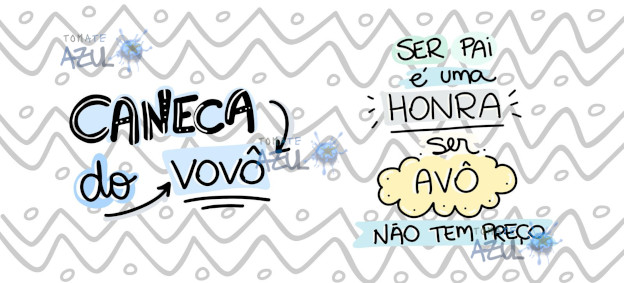 TOMATE
AZUL
CANECA
do VOVÔ
TOMATE
AZUL
SER PAI
é uma
HONRA
ser
AVÔ
NÃO TEM PREÇO
TOMATE
AZUL